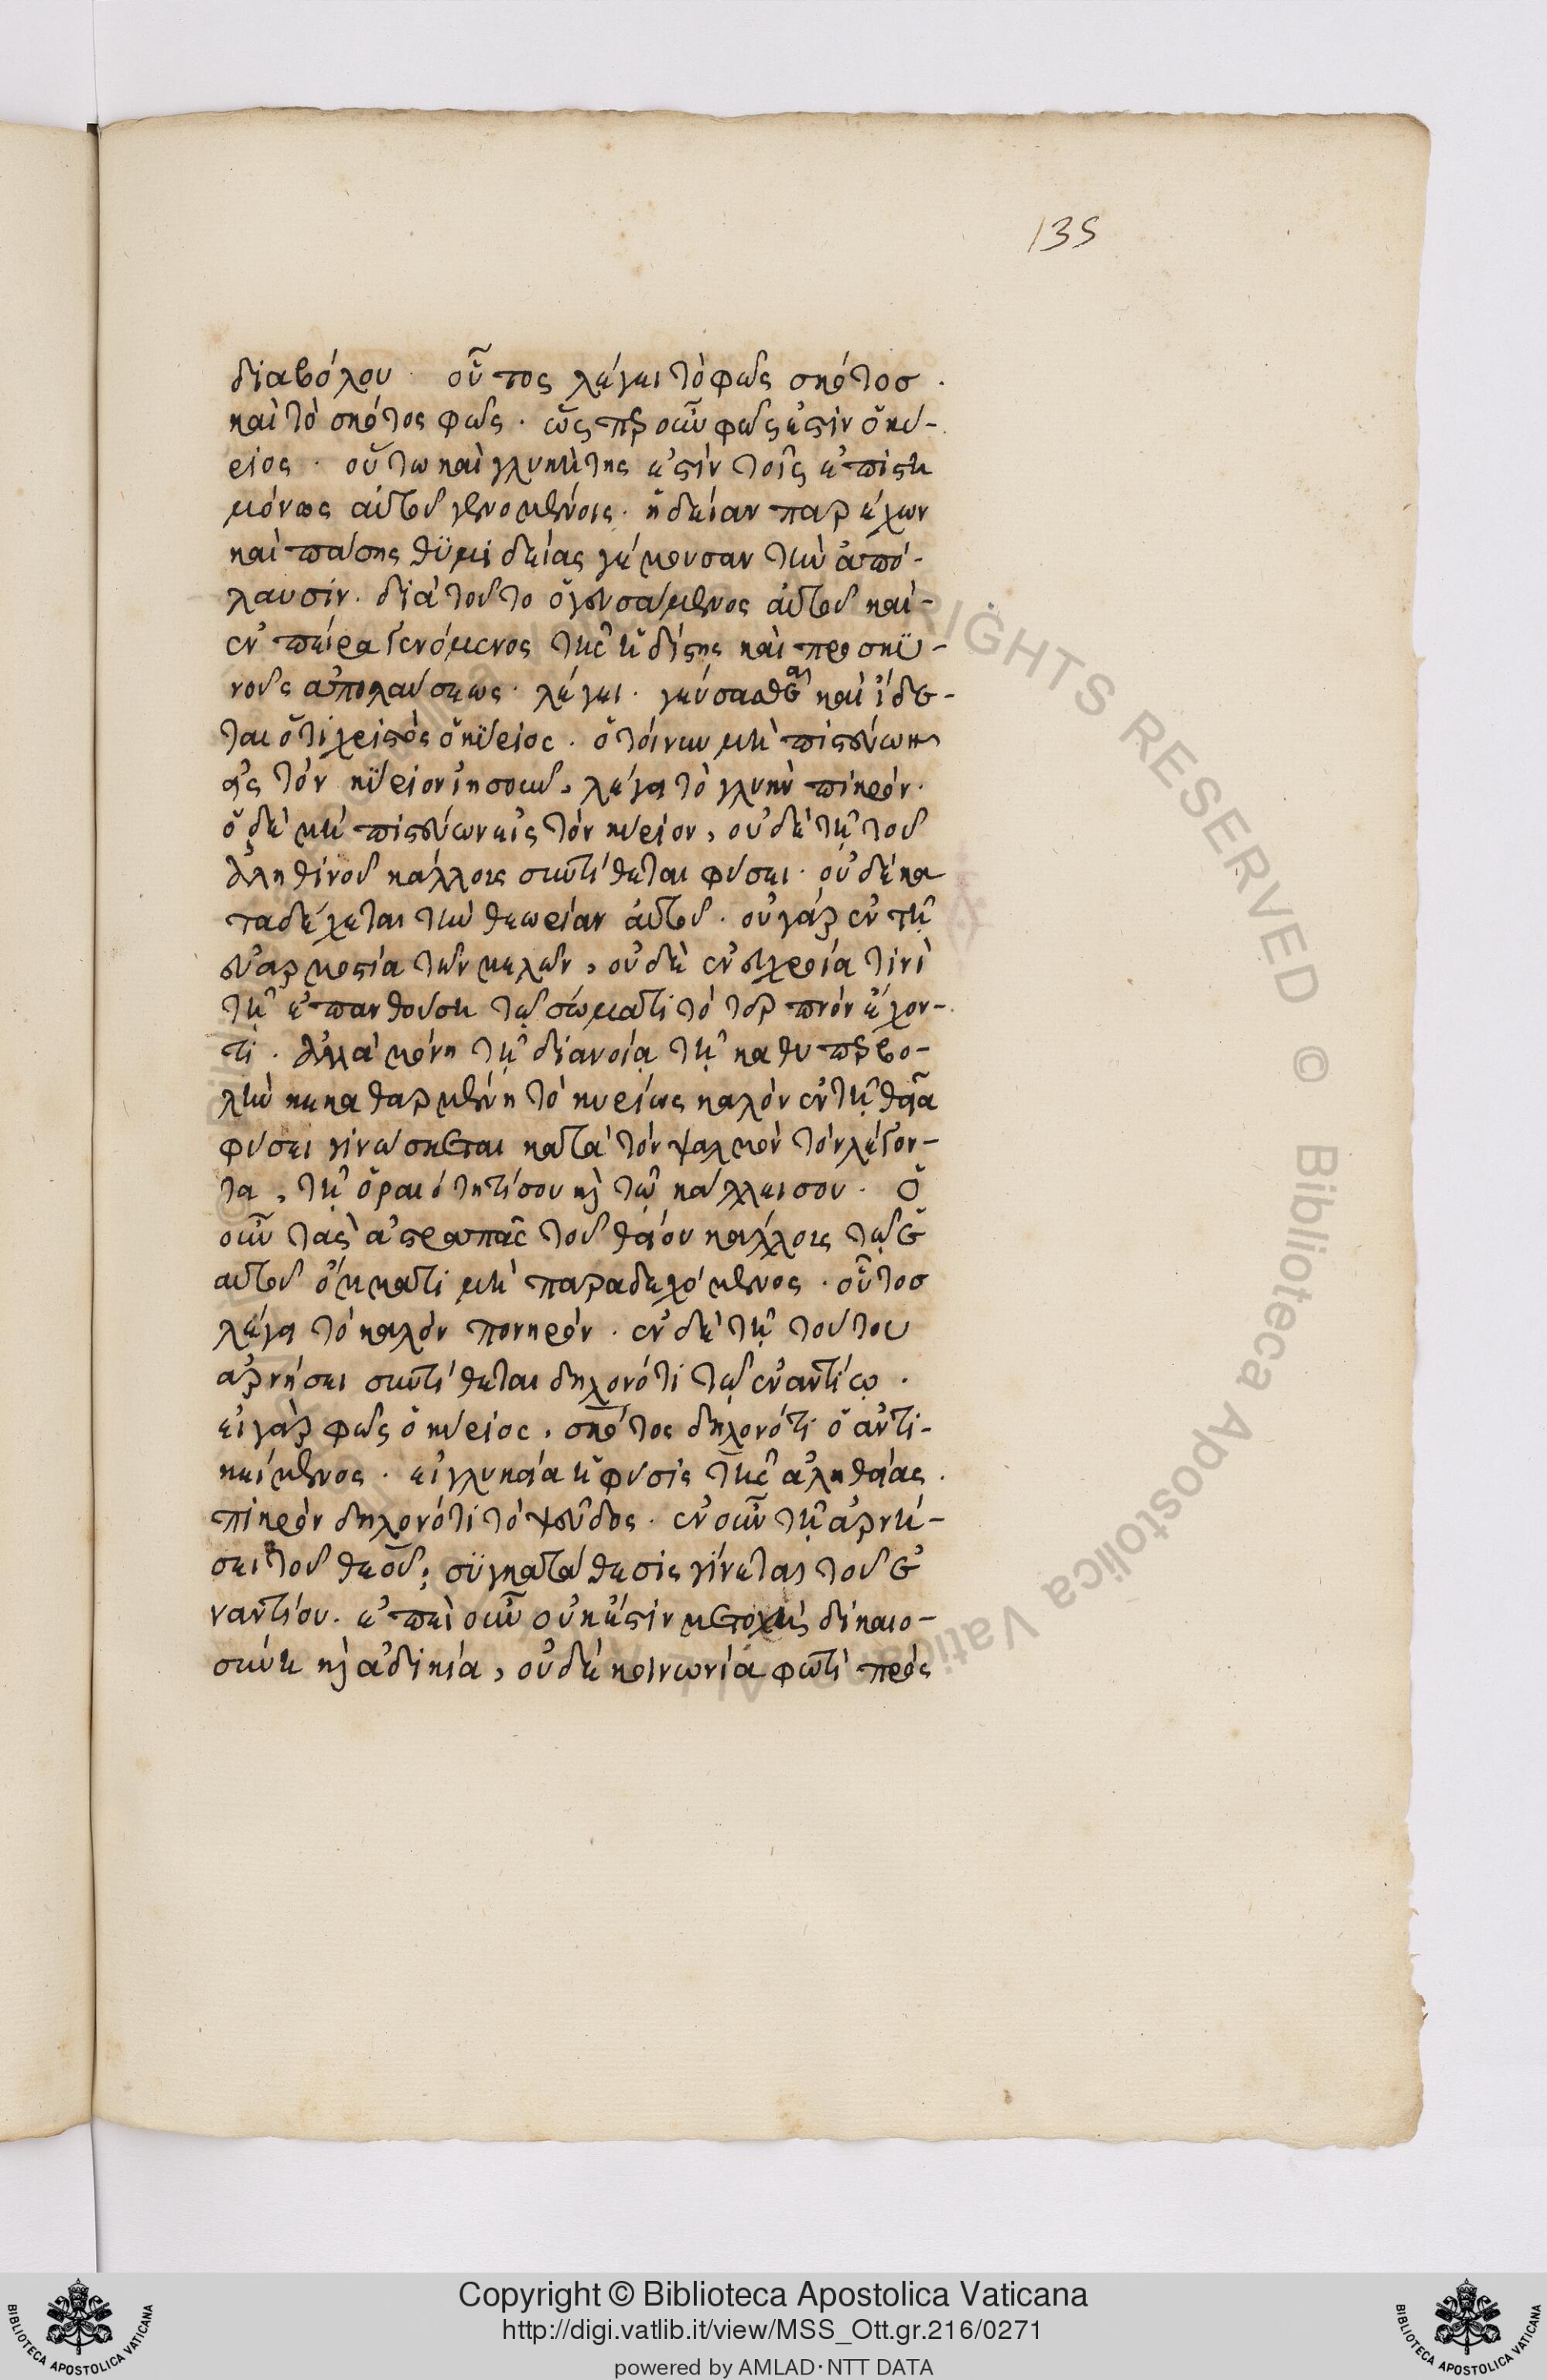 135
διαβόλου· οὗτος λέγει τὸ φῶς σκότοσ·
καὶ τὸ σκότος φῶς· ὥς περ οὖν φῶς ἐστὶν ὁ κύ-
ριος· οὕτω καὶ γλυκύτης ἐστὶν τοῖς ἐπιστη
μόνως αὐτοῦ γευομένοις· ἡδεῖαν παρέχων
καὶ πάσης θϋμιδείας γέμουσαν τὴν ἀπό-
λαυσιν· διὰ τοῦτο ὁ γευσάμενος αὐτοῦ καὶ-
ἐν πείρα γενόμενος τῆς ἡδίστης καὶ προσηϋ-
νοῦς ἀπολαύσεως· λέγει· γεύσασθε καὶ ἴδε-
ται ὅτι χριστὸς ὁ κύριος· ὁ τοίνυν μὴ πιστεύων
εἰς τὸν κύριον ἰησοῦν, λέγει τὸ γλυκὺ πικρόν·
ὁ δὲ μὴ πιστεύων εἰς τὸν κύριον, οὐδὲ τῇ τοῦ
ἀληθινοῦ κάλλους συντίθεται φύσει· οὐδὲ κα
ταδέχεται τὴν θεωρίαν αὐτοῦ· οὐ γὰρ ἐν τῇ
εὐαρμοστία τῶν μελῶν, οὐδὲ ἐν εὐχροία τινὶ
τῇ ἐπανθούση τῷ σώματι τὸ τερπνὸν ἔχον-
τι· ἀλλὰ μόνη τῇ διανοίᾳ τῇ καθυπερβο-
λὴν κεκαθαρμένη τὸ κυρίως καλὸν ἐν τῇ θεία
φύσει γινώσκεται κατὰ τὸν ψαλμὸν τὸν λέγον-
τα, τῇ ὁραιότητί σου καὶ τῷ κάλλει σου· Ὁ
οὖν τὰς ἀστραπὰς τοῦ θείου κάλλους τῷ ἑ
αυτοῦ ὄμματι μὴ παραδεχόμενος· οὗτοσ
λέγει τὸ καλὸν πονηρόν· ἐν δὲ τῇ τούτου
ἀρνήσει συντίθεται δηλονότι τῷ ἐναντίῳ·
εἰ γὰρ φῶς ὁ κύριος, σκότος δηλονότι ὁ ἀντι-
κείμενος· εἰ γλυκεία ἡ φύσις τῆς ἀληθείας·
πικρὸν δηλονότι τὸ ψεῦδος· ἐν οὖν τῇ ἀρνή-
σει τοῦ θεοῦ, συγκατάθεσις γίνεται τοῦ ἐ
ναντίου· ἐπεὶ οὖν οὐκ ἔστιν μετοχὴ δικαιο-
σύνη καὶ ἀδικία, οὐδὲ κοινωνία φωτὶ πρὸς
Copyright © Biblioteca Apostolica Vaticana
http://digi.vatlib.it/view/MSS_Ott.gr.216/0271
powered by AMLAD·NTT DATA